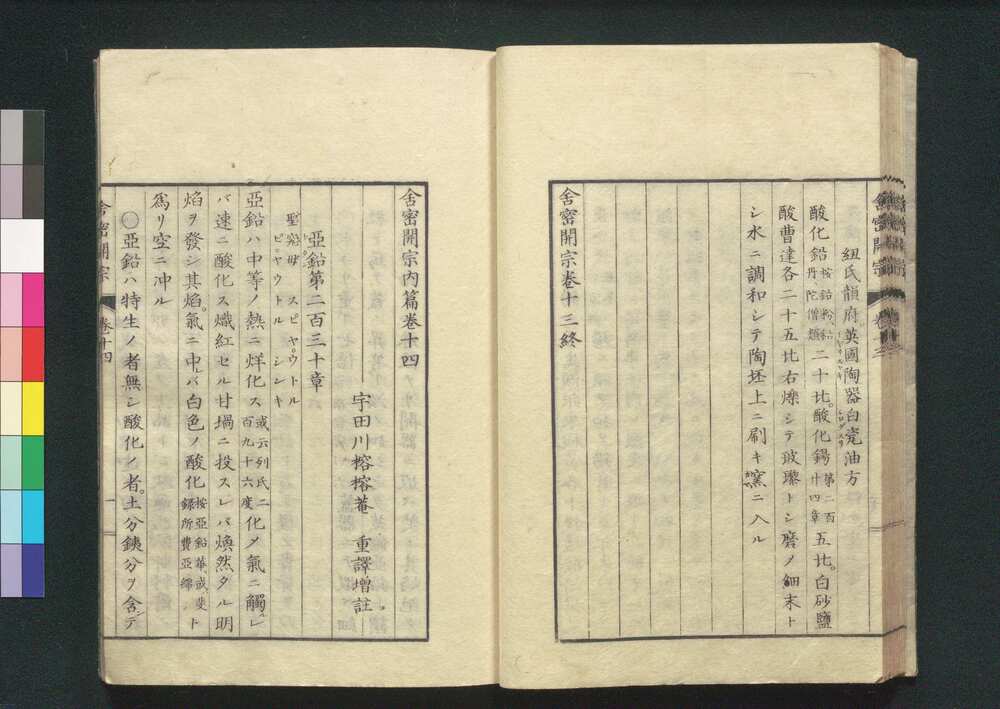 紐氏韻府英國陶器白瓷油方
酸化鉛按鉛粉鉛丹陀僧類二十比。酸化錫第二百廿四章五比。白砂鹽
酸曹達各二十五比右爍シテ玻瓈トシ磨ノ細末ト
シ水ニ調和シテ陶坯上ニ刷キ窯ニ入ル
舍密開宗卷十三終
舍密開宗內篇卷十四
宇田川榕菴 重譯增註
亞鉛第二百三十章
スピャウトル
ピャウトル シンキ
亞鉛ハ中等ノ熱ニ烊化ス或云列氏二百九十六度化〆氣ニ觸レ
バ速ニ酸化ス熾紅セル甘堝ニ投スレバ煥然タル明
焰ヲ發シ其焰。氣ニ中レバ白色ノ酸化按亞鉛華或斐卜録所費亞綿
爲リ空ニ冲ル
○亞鉛ハ特生ノ者無シ酸化ノ者。土分鐵分ヲ含テ
舍密開宗 卷十四 一